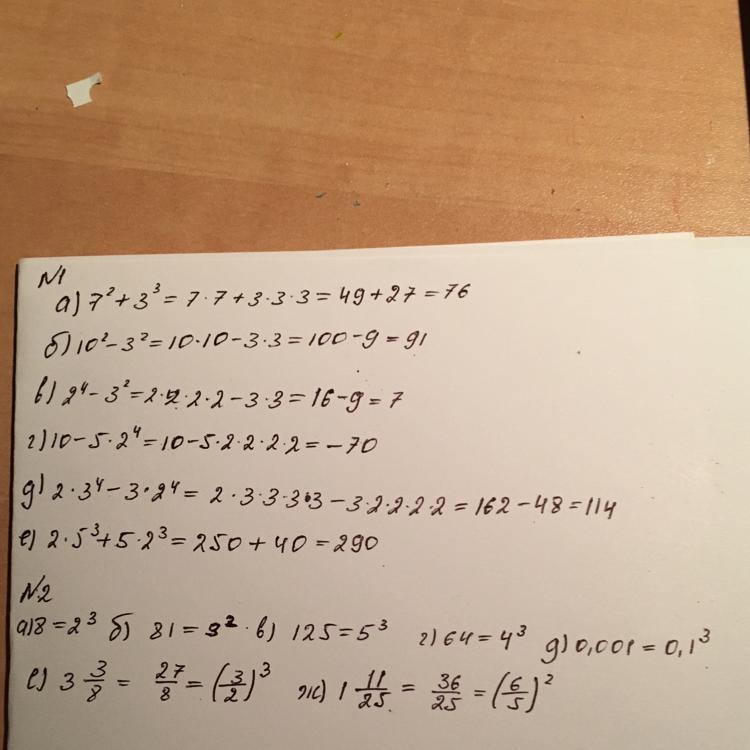 №1
а) 7² + 3³ = 7·7 + 3·3·3 = 49 + 27 = 76
б) 10² − 3² = 10·10 − 3·3 = 100 − 9 = 91
в) 2⁴ − 3² = 2·2·2·2 − 3·3 = 16 − 9 = 7
г) 10 − 5·2⁴ = 10 − 5·2·2·2·2 = −70
д) 2·3⁴ − 3·2⁴ = 2·3·3·3·3 − 3·2·2·2·2 = 162 − 48 = 114
е) 2·5³ + 5·2³ = 250 + 40 = 290
№2
а) 8 = 2³ б) 81 = 9² в) 125 = 5³ г) 64 = 4³ д) 0,001 = 0,1³
е) 3 3/8 = 27/8 = (3/2)³ ж) 1 11/25 = 36/25 = (6/5)²